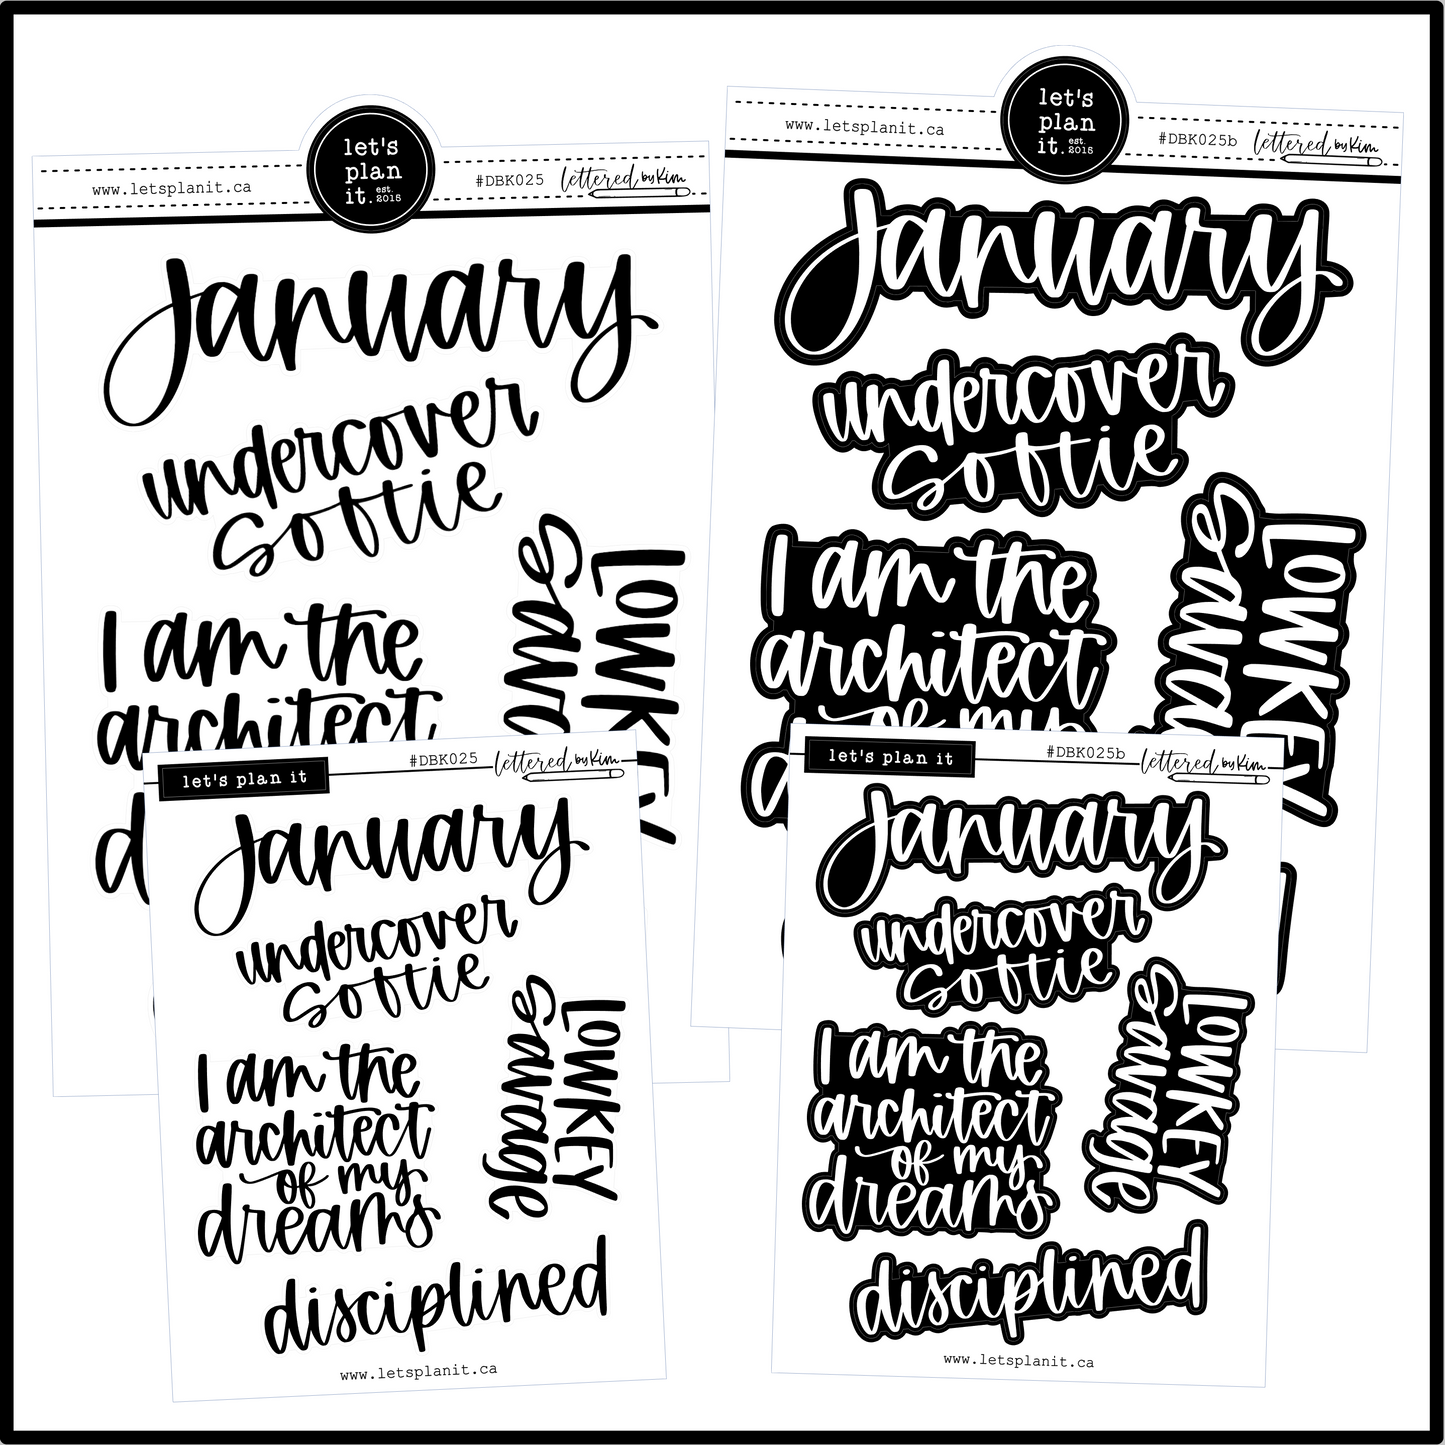 let's
plan
it. est. 2015
www.letsplanit.ca
#DBK025
lettered by Kim
January
undercover
softie
I am the
architect
d
LOWKEY
sava
let's
plan
it. est. 2015
www.letsplanit.ca
#DBK025b
lettered by Kim
January
undercover
softie
I am the
architect
of my
d
LOWKEY
sava
let's plan it
#DBK025
lettered by Kim
January
undercover
softie
I am the
architect
of my
dreams
LOWKEY
savage
disciplined
www.letsplanit.ca
let's plan it
#DBK025b
lettered by Kim
January
undercover
softie
I am the
architect
of my
dreams
LOWKEY
savage
disciplined
www.letsplanit.ca